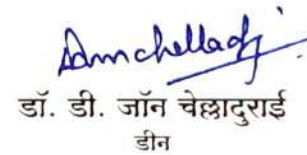 डॉ. डी. जॉन चेल्लादुराई
डीन